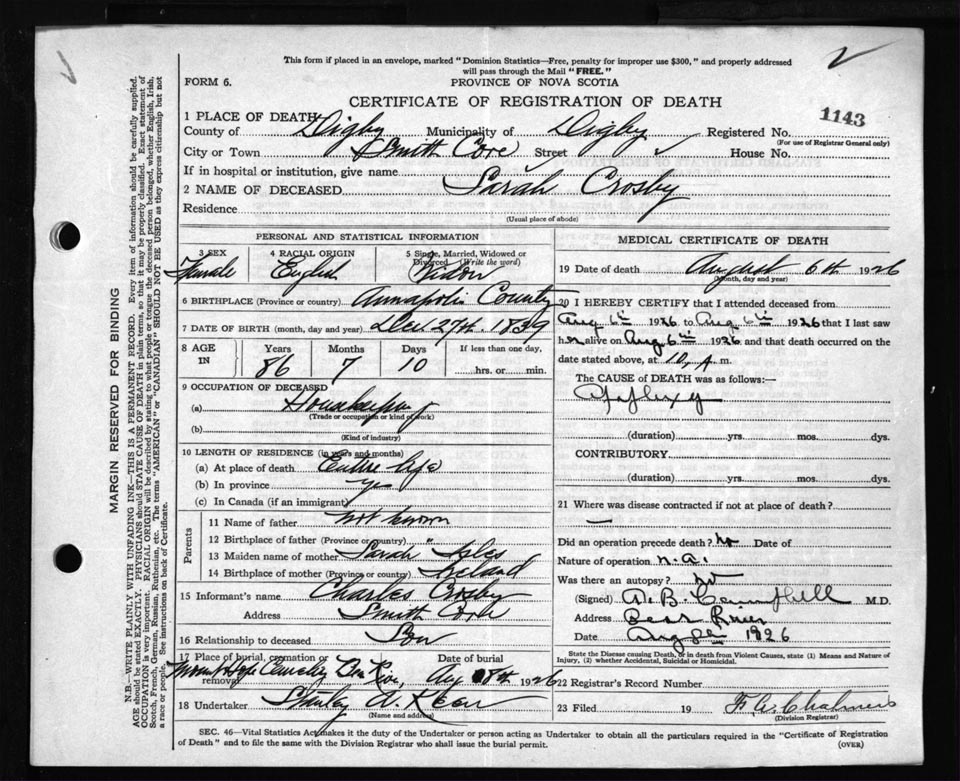 This form if placed in an envelope, marked "Dominion Statistics—Free, penalty for improper use $300," and properly addressed
will pass through the Mail "FREE."
FORM 6. PROVINCE OF NOVA SCOTIA
CERTIFICATE OF REGISTRATION OF DEATH
1143
1 PLACE OF DEATH
County of Digby Municipality of Digby Registered No.
(For use of Registrar General only)
City or Town Smith Cove Street House No.
If in hospital or institution, give name
2 NAME OF DECEASED Sarah Crosby
Residence
(Usual place of abode)
PERSONAL AND STATISTICAL INFORMATION
3 SEX 4 RACIAL ORIGIN 5 Single, Married, Widowed or Divorced (Write the word)
Female English Widow
6 BIRTHPLACE (Province or country) Annapolis County
7 DATE OF BIRTH (month, day and year) Dec. 27th. 1839
8 AGE IN Years Months Days If less than one day,
86 7 10 hrs. or min.
9 OCCUPATION OF DECEASED
(a) Housekeeping
(Trade or occupation or kind of work)
(b)
(Kind of industry)
10 LENGTH OF RESIDENCE (in years and months)
(a) At place of death Entire life
(b) In province "
(c) In Canada (if an immigrant)
Parents
11 Name of father not known
12 Birthplace of father (Province or country) "
13 Maiden name of mother Sarah
14 Birthplace of mother (Province or country) Ireland
15 Informant's name Charles Crosby
Address Smith Cove
16 Relationship to deceased Son
17 Place of burial, cremation or removal Date of burial
Mount Hope Cemetery Bear River, Aug 8th 1926
18 Undertaker Stanley A.
(Name and address)
MEDICAL CERTIFICATE OF DEATH
19 Date of death August 6th 1926
(Month, day and year)
20 I HEREBY CERTIFY that I attended deceased from
Aug 6th 1926 to Aug 6th 1926 that I last saw
her alive on Aug 6th 1926 and that death occurred on the
date stated above, at 10, A m.
The CAUSE OF DEATH was as follows:—
Apoplexy
(duration) yrs. mos. dys.
CONTRIBUTORY
(duration) yrs. mos. dys.
21 Where was disease contracted if not at place of death?
—
Did an operation precede death? No Date of
Nature of operation n.a.
Was there an autopsy? no
(Signed) A. B. Campbell M.D.
Address Bear River
Date Aug 8th 1926
State the Disease causing Death, or in death from Violent Causes, state (1) Means and Nature of
Injury, (2) whether Accidental, Suicidal or Homicidal.
22 Registrar's Record Number
23 Filed 19 F. W. Chalmers
(Division Registrar)
SEC. 46—Vital Statistics Act makes it the duty of the Undertaker or person acting as Undertaker to obtain all the particulars required in the "Certificate of Registration
of Death" and to file the same with the Division Registrar who shall issue the burial permit. (OVER)
MARGIN RESERVED FOR BINDING
N.B.—WRITE PLAINLY WITH UNFADING INK—THIS IS A PERMANENT RECORD. Every item of information should be carefully supplied.
AGE should be stated EXACTLY. PHYSICIANS should STATE CAUSE OF DEATH in plain terms, so that it may be properly classified. Exact statement of
OCCUPATION is very important. RACIAL ORIGIN will be described by stating to what people or tongue the deceased person belonged, whether English, Irish,
Scotch, French, German, Russian, Ruthenian, etc. The terms "AMERICAN" or "CANADIAN" SHOULD NOT BE USED as they express citizenship but not
a race or people. See instructions on back of Certificate.